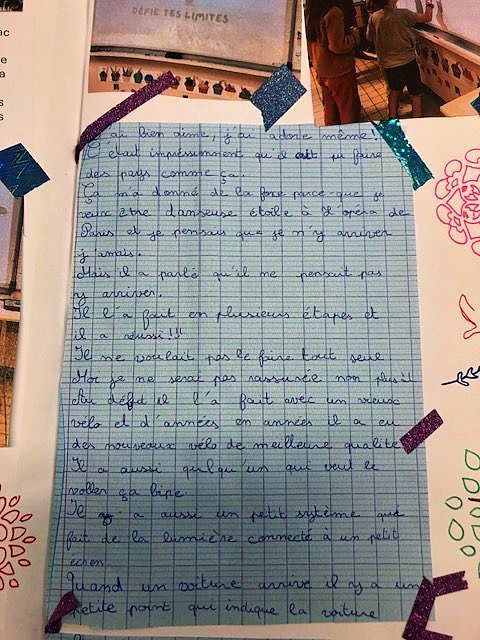 DÉFIE TES LIMITES
nc
e
a
s
s
J'ai bien aimé, j'ai adoré même!
C'était impressionnent qu'il ait pu faire
des pays comme ça.
Ça m'a donné de la force parce-que je
veux être danseuse étoile à l'opéra de
Paris et je pensais que je n'y arriver
jamais.
Mais il a parlé qu'il ne pensait pas
y arriver.
Il l'a fait en plusieurs étapes et
il a réussi!!!
Il ne voulait pas le faire tout seul
Moi je ne serai pas rassurée non plus!!
Au début il l'a fait avec un vieux
vélo et d'années en années il a eu
des nouveaux vélo de meilleure qualité
Il a aussi quelqu'un qui veut le
voller ça bipe.
Il a aussi un petit système que
fait de la lumière connecté à un petit
écran
Quand un voiture arrive il y a un
petite point qui indique la voiture